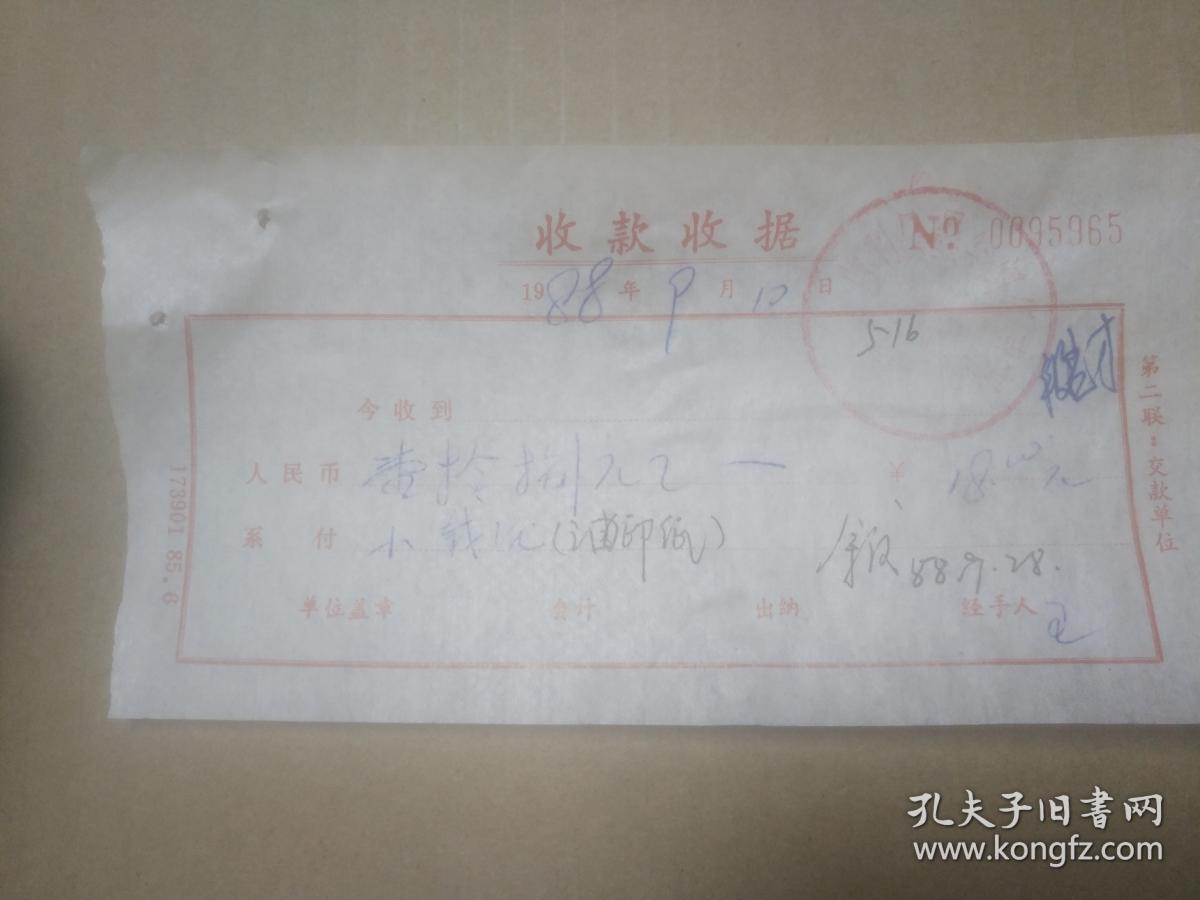 收款收据 No 0095965
1988年9月10日
5-16
今收到
人民币 壹拾捌元 ¥ 18.00元
系付 小 (油印纸)
88.9.28.
单位盖章 会计 出纳 经手人 王
第二联：交款单位
173901 85.6
孔夫子旧书网
www.kongfz.com